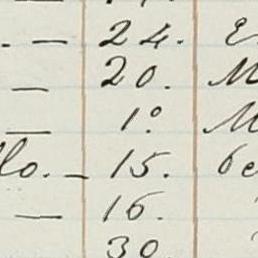 . — 24. E
— 20. M
— 1.º M
llo. — 15. be
— 16.
30